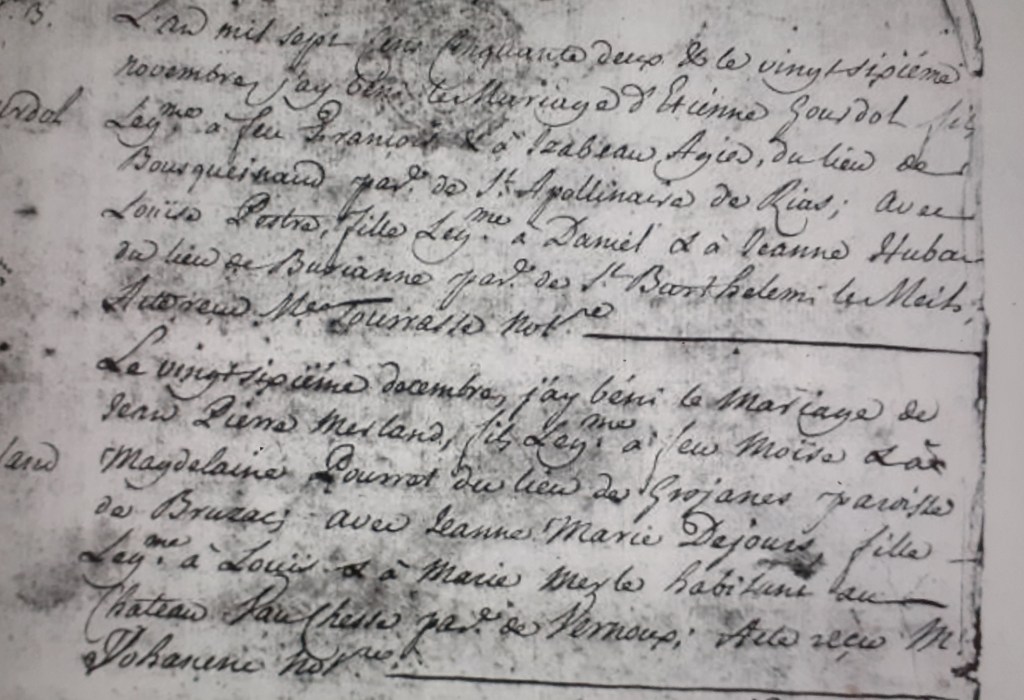 L'an mil sept cens Cinquante deux & le vingtsixiéme
novembre, j'ay béni le Mariage d'Etienne Gourdol fils
Leg.me à feu François & à Izabeau Agier, du lieu de
Bousqueinaud par.e de St. Apollinaire de Rias; avec
Louïse Postre, fille Leg.me à Daniel & à Jeanne
du lieu de Burianne par.e de St Barthelemi le Meil;
Acte reçu Me Tourrasse not.re
Le vingtsixiéme decembre, j'ay béni le Mariage de
Jean Pierre Merland, fils Leg.me à feu Moïse & à
Magdelaine Pourrot du lieu de Grojanes paroisse
de Bruzac; avec Jeanne Marie Dejours, fille
Leg.me à Louïs & à Marie Mezle habitant au
Chateau par.e de Vernoux; Acte reçu M.
not.re